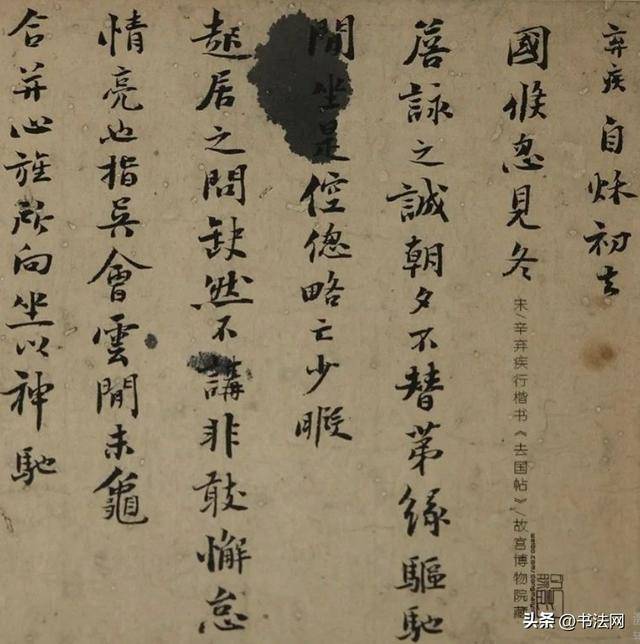 弃疾自秌初去
國倏忽見冬
詹詠之誠朝夕不替苐緣驅馳
間坐是倥傯略亡少暇
起居之問缺然不講非敢懈怠
情亮也指吳會雲間未龜
合并心旌所向坐以神馳
宋/辛弃疾行楷书《去国帖》/故宫博物院藏
头条@书法网